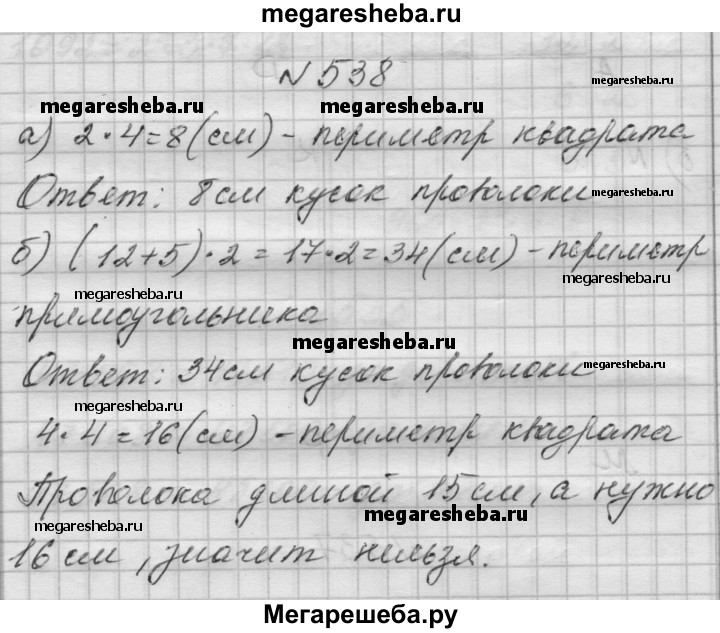 megaresheba.ru
№ 538
megaresheba.ru
megaresheba.ru megaresheba.ru
а) 2·4=8(см) - периметр квадрата
Ответ: 8см кусок проволоки
megaresheba.ru
б) (12+5)·2=17·2=34(см) - периметр
megaresheba.ru megaresheba.ru
прямоугольника
megaresheba.ru
Ответ: 34см кусок проволоки
megaresheba.ru
megaresheba.ru
4·4=16(см) - периметр квадрата
Проволока длиной 15см, а нужно
megaresheba.ru megaresheba.ru
16см, значит нельзя.
Мегарешеба.ру